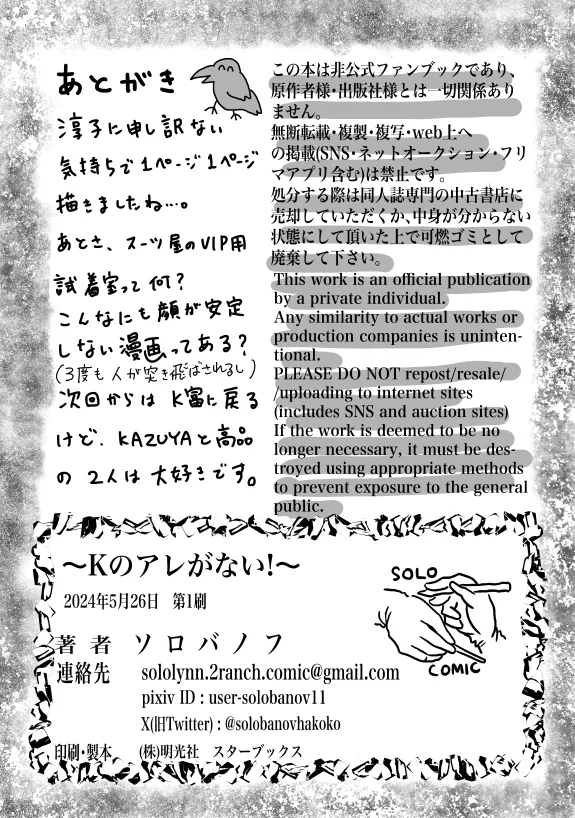 あとがき
淳子に申し訳ない
気持ちで1ページ1ページ
描きましたね…。
あとさ、スーツ屋のVIP用
試着室って何？
こんなにも顔が安定
しない漫画ってある？
(3度も人が突き飛ばされるし)
次回からは K富に戻る
けど、KAZUYAと高品
の 2人は大好きです。
この本は非公式ファンブックであり、
原作者様・出版社様とは一切関係あり
ません。
無断転載・複製・複写・web上へ
の掲載(SNS・ネットオークション・フリ
マアプリ含む)は禁止です。
処分する際は同人誌専門の中古書店に
売却していただくか、中身が分からない
状態にして頂いた上で可燃ゴミとして
廃棄して下さい。
This work is an official publication
by a private individual.
Any similarity to actual works or
production companies is uninten-
tional.
PLEASE DO NOT repost/resale/
/uploading to internet sites
(includes SNS and auction sites)
If the work is deemed to be no
longer necessary, it must be des-
troyed using appropriate methods
to prevent exposure to the general
public.
～Kのアレがない!～
2024年5月26日 第1刷
著者 ソロバノフ
連絡先 sololynn.2ranch.comic@gmail.com
pixiv ID : user-solobanov11
X(旧Twitter) : @solobanovhakoko
印刷・製本 (株)明光社 スターブックス
SOLO
COMIC